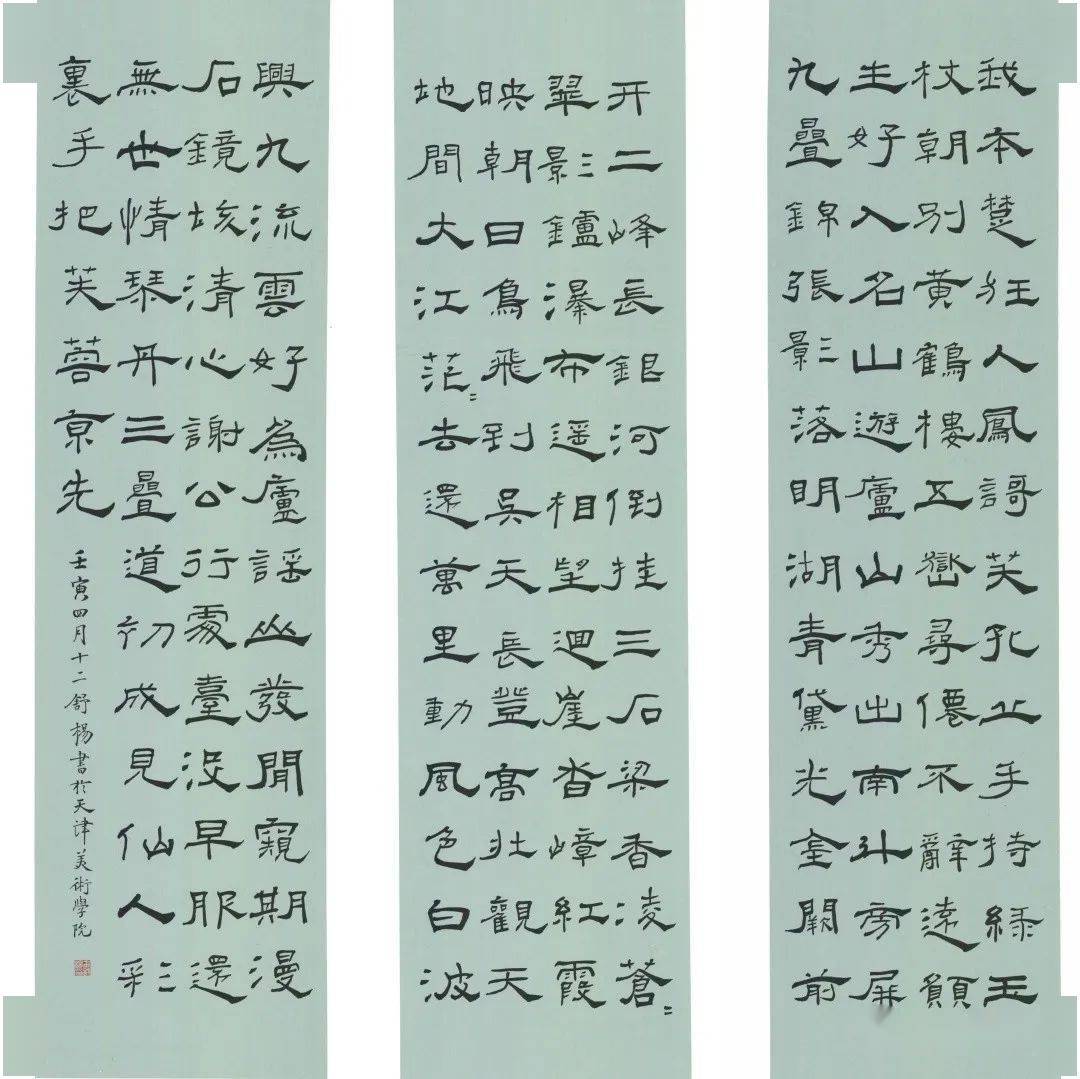 我本楚狂人鳳謌笑孔丘手持綠玉
杖朝別黃鶴樓五嶽尋僊不辭遠
生好入名山遊廬山秀出南斗旁屏
九疊錦張影落明湖青黛光金闕前
开二峰長銀河倒挂三石梁香凌蒼〻
翠影鑪瀑布遥相望迴崖沓嶂紅霞
映朝日鳥飛到吳天長登高壯觀天
地間大江茫〻去還萬里動風色白波
興九流雲好為廬謠山發閒窺期漫
石鏡垓清心謝公行處臺沒早服還
無世情琴丹三疊道初成見仙人彩
裏手把芙蓉京先
壬寅四月十二舒楊書於天津美術學院